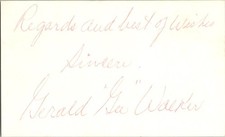 Regards and best of wishes
Sincere.
Gerald "Gee" Walker